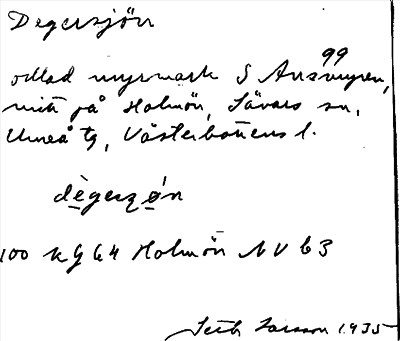 Degersjön
99
odlad myrmark S Ansmyren,
mitt på Holmön, Sävars sn,
Umeå tg, Västerbottens l.
dègerʒø̀n
100 kg 64 Holmön NV 63
Seth Larsson 1935